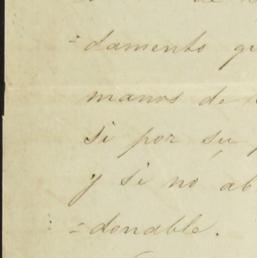 =damento
manos de
si por su
y si no ab
=donable.